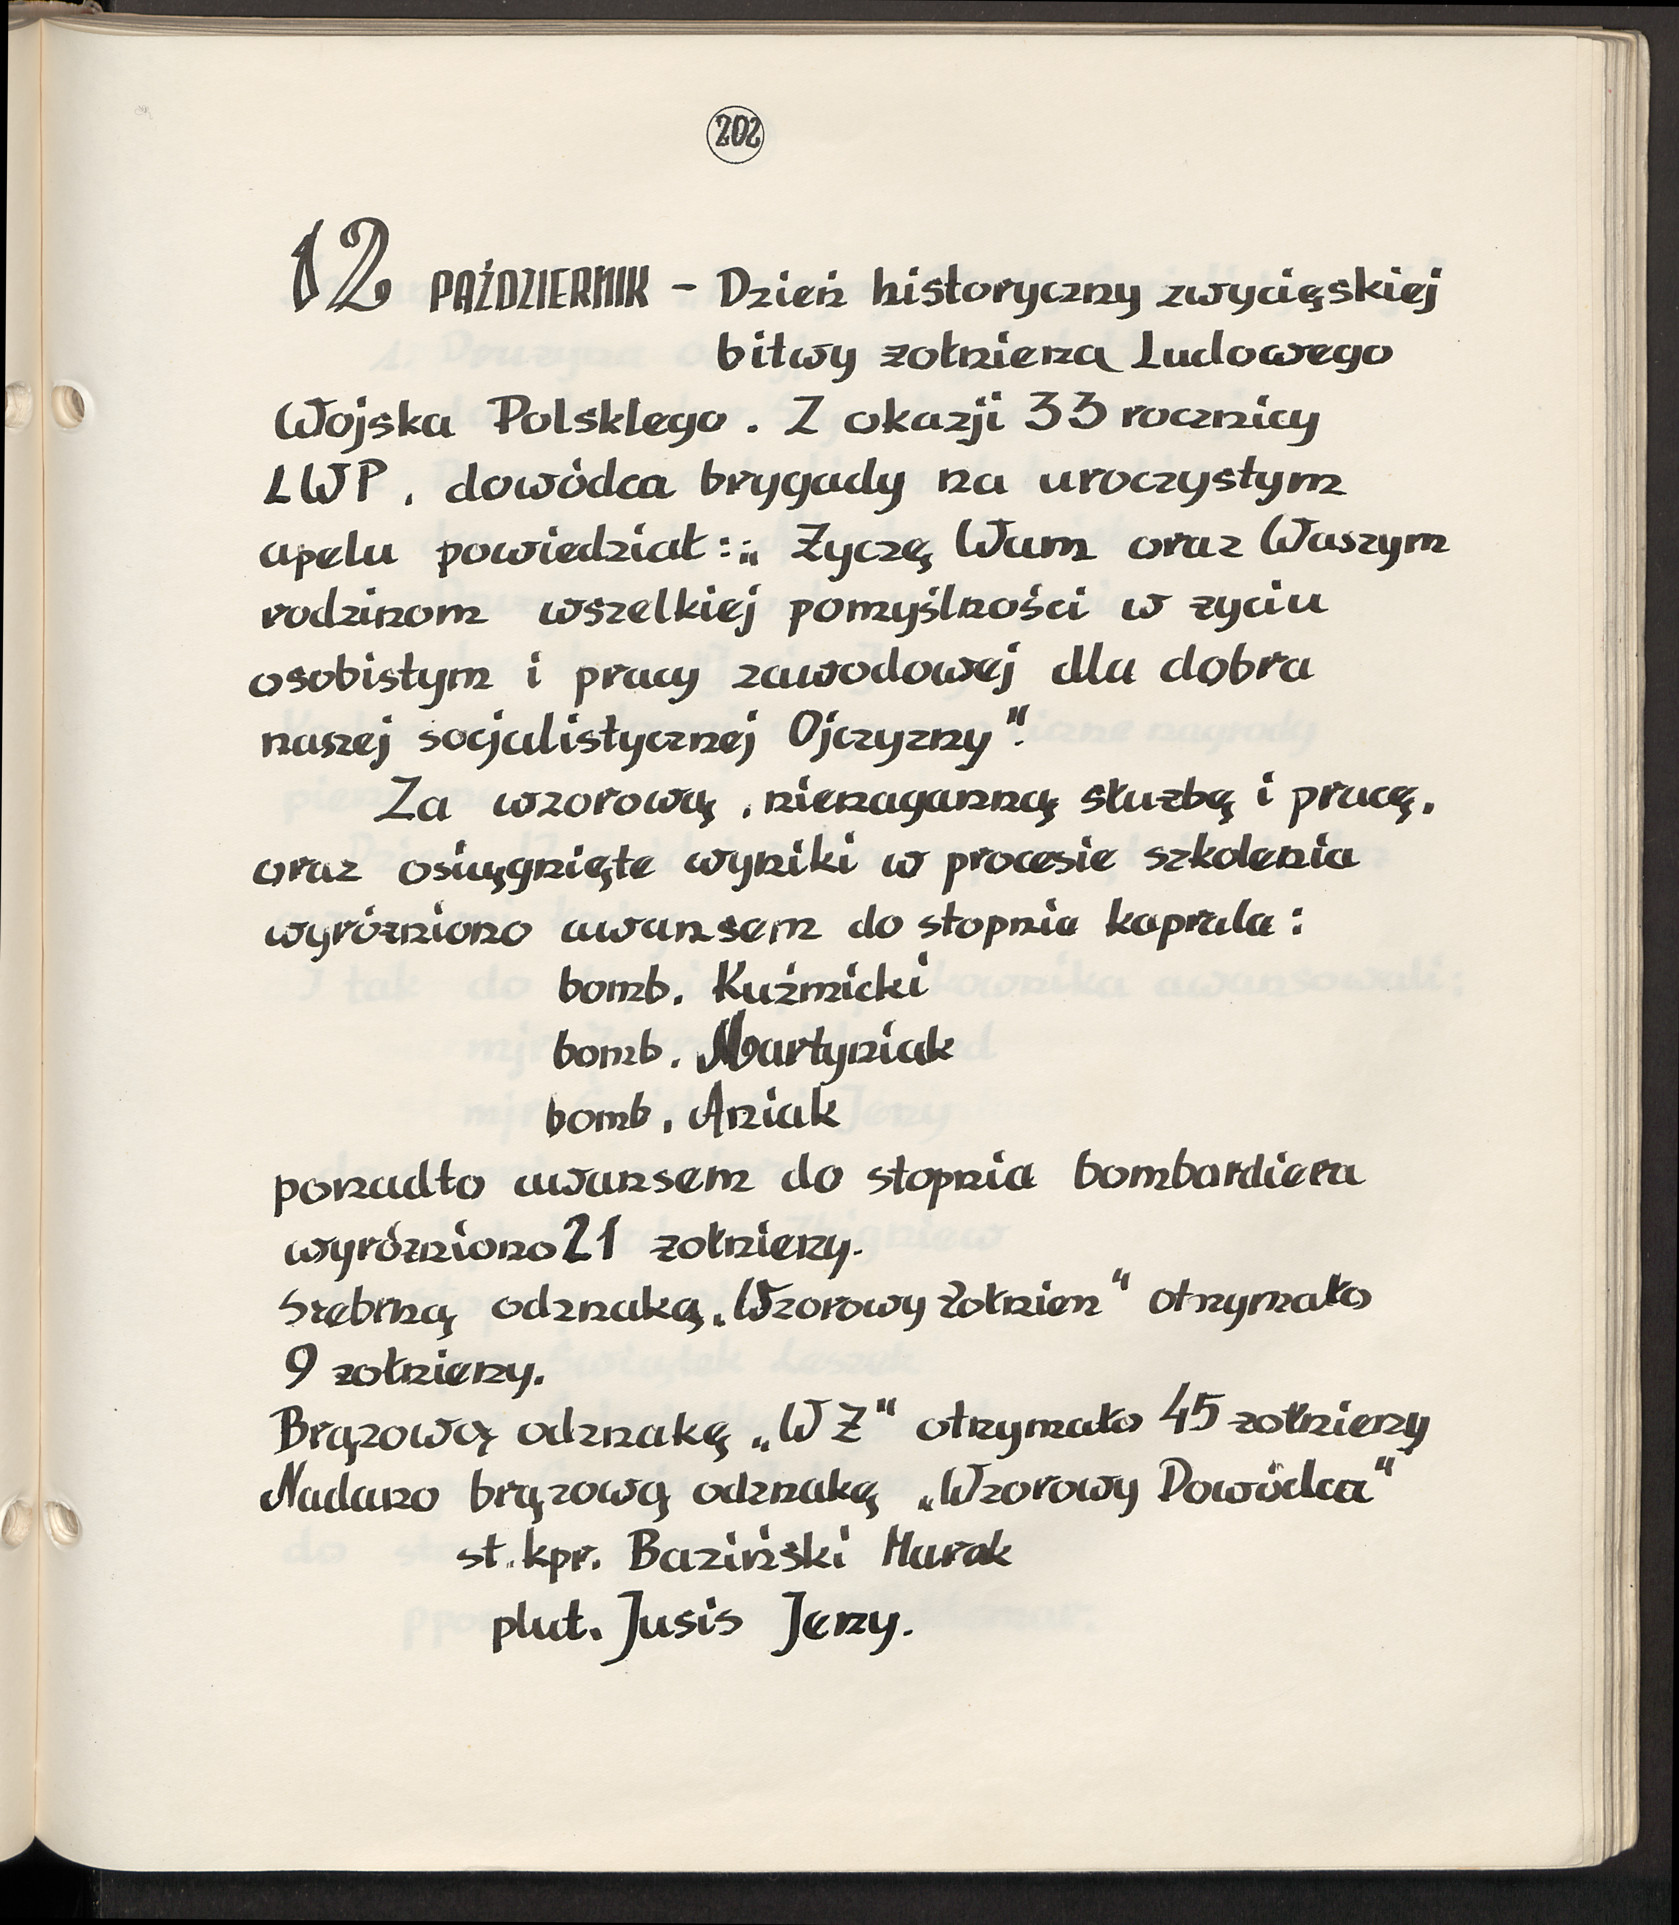 202
12 PAŹDZIERNIK - Dzień historyczny zwycięskiej
bitwy żołnierza Ludowego
Wojska Polskiego. Z okazji 33 rocznicy
LWP, dowódca brygady na uroczystym
apelu powiedział: „Życzę Wam oraz Waszym
rodzinom wszelkiej pomyślności w życiu
osobistym i pracy zawodowej dla dobra
naszej socjalistycznej Ojczyzny".
Za wzorową, nienaganną służbę i pracę,
oraz osiągnięte wyniki w procesie szkolenia
wyróżniono awansem do stopnia kaprala:
bomb. Kuźmicki
bomb. Martyniak
bomb. Aniak
ponadto awansem do stopnia bombardiera
wyróżniono 21 żołnierzy.
Srebrną odznakę „Wzorowy Żołnierz" otrzymało
9 żołnierzy.
Brązową odznakę „WŻ" otrzymało 45 żołnierzy
Nadano brązową odznakę „Wzorowy Dowódca"
st. kpr. Baziński Marek
plut. Jusis Jerzy.